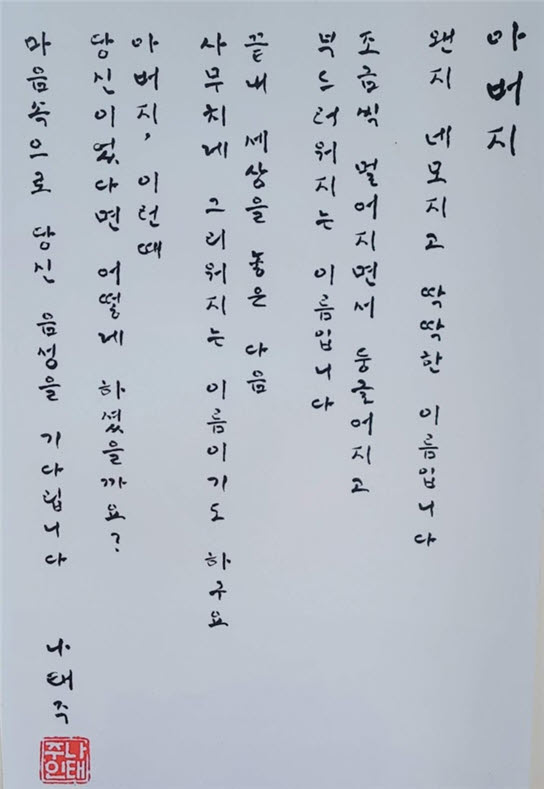 아버지
왠지 네모지고 딱딱한 이름입니다
조금씩 멀어지면서 둥글어지고
부드러워지는 이름입니다
끝내 세상을 놓은 다음
사무치게 그리워지는 이름이기도 하구요
아버지, 이런 때
당신이었다면 어떻게 하셨을까요?
마음속으로 당신 음성을 기다립니다
나태주
나태주인